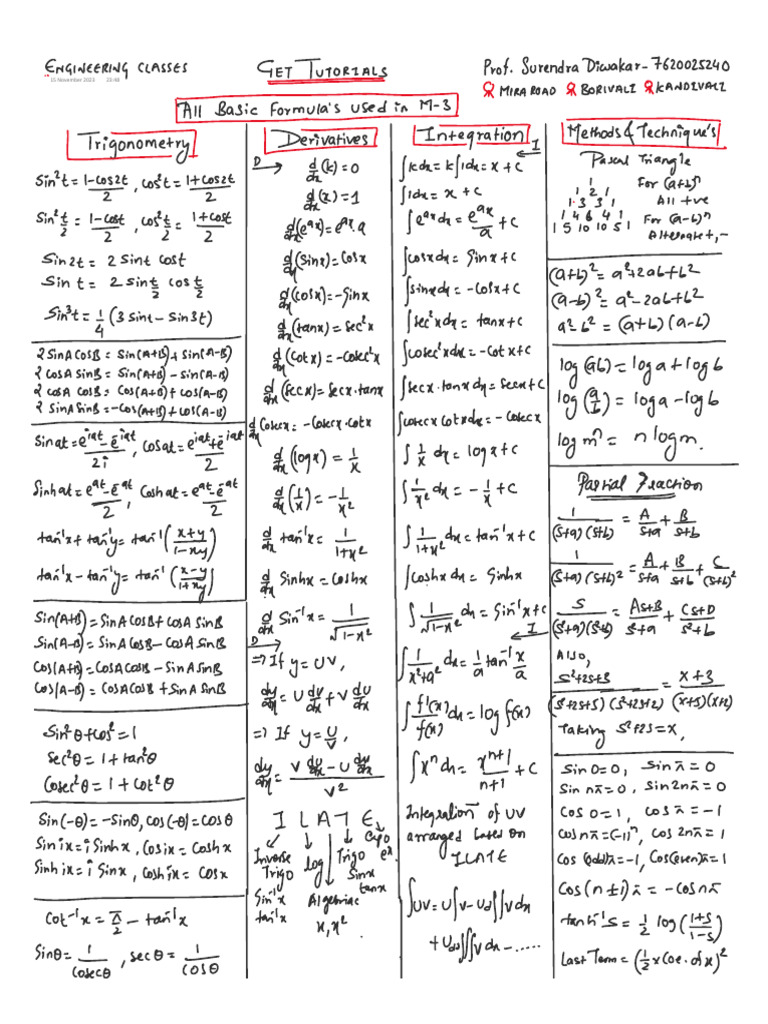 ENGINEERING CLASSES
15 November 2023 23:48
GET TUTORIALS
Prof. Surendra Diwakar - 7620025240
MIRA ROAD BORIVALI KANDIVALI
All Basic Formula's used in M-3
Trigonometry
sin²t = 1-cos2t/2, cos²t = 1+cos2t/2
sin²t/2 = 1-cost/2, cos²t/2 = 1+cost/2
Sin2t = 2 Sint cost
Sin t = 2 Sin t/2 cos t/2
Sin³t = 1/4 (3 Sint - Sin3t)
2 SinA CosB = Sin(A+B) + Sin(A-B)
2 cosA SinB = Sin(A+B) - Sin(A-B)
2 cosA CosB = Cos(A+B) + cos(A-B)
2 SinA SinB = -Cos(A+B) + cos(A-B)
Sin at = e^iat - e^-iat/2i, Cos at = e^iat + e^-iat/2
Sinh at = e^at - e^-at/2, Cosh at = e^at - e^-at/2
tan⁻¹x + tan⁻¹y = tan⁻¹(x+y/1-xy)
tan⁻¹x - tan⁻¹y = tan⁻¹(x-y/1+xy)
Sin(A+B) = SinA CosB + cosA SinB
Sin(A-B) = SinA CosB - CosA SinB
Cos(A+B) = CosA CosB - SinA SinB
Cos(A-B) = CosA CosB + SinA SinB
Sin²θ + cos² = 1
Sec²θ = 1 + tan²θ
Cosec²θ = 1 + Cot²θ
Sin(-θ) = -Sinθ, cos(-θ) = cosθ
Sin ix = i Sinhx, Cos ix = Coshx
Sinh ix = i Sinx, Cosh ix = Cosx
Cot⁻¹x = π/2 - tan⁻¹x
Sinθ = 1/Cosecθ, secθ = 1/cosθ
Derivatives
D
d/dx (k) = 0
d/dx (x) = 1
d/dx (e^ax) = e^ax · a
d/dx (Sinx) = Cosx
d/dx (cosx) = -Sinx
d/dx (tanx) = Sec²x
d/dx (Cotx) = -Cosec²x
d/dx (Secx) = Secx·tanx
d/dx Cosecx = -Cosecx·Cotx
d/dx (logx) = 1/x
d/dx (1/x) = -1/x²
d/dx tan⁻¹x = 1/1+x²
d/dx Sinhx = Coshx
d/dx Sin⁻¹x = 1/√1-x²
D
=> If y = UV,
dy/dx = U dV/dx + V dU/dx
=> If y = U/V,
dy/dx = V dU/dx - U dV/dx / V²
I L A T E
Inverse Trigo
log
Trigo
Expo
e^x
Sin⁻¹x
tan⁻¹x
Algebraic
x, x²
Sinx
tanx
Integration
I
∫kdx = k∫1dx = x + C
∫1dx = x + C
∫e^ax dx = e^ax/a + C
∫Cosxdx = Sinx + C
∫sinxdx = -Cosx + C
∫Sec²xdx = tanx + C
∫Cosec²xdx = -Cotx + C
∫Secx·tanxdx = Secx + C
∫CosecxCotxdx = -Cosecx
∫1/x dx = logx + C
∫1/x² dx = -1/x + C
∫1/1+x² dx = tan⁻¹x + C
∫Coshxdx = Sinhx
∫1/√1-x² dx = Sin⁻¹x + C
I
∫1/x²+a² dx = 1/a tan⁻¹ x/a
∫f'(x)/f(x) dx = log f(x)
∫xⁿdx = xⁿ⁺¹/n+1 + C
Integration of UV
arranged based on
ILATE
∫UV = U∫V - Ud∫∫Vdx
+ Udd∫∫∫Vdx - .....
Methods & Technique's
Pascal Triangle
1
1 2 1
1 3 3 1
1 4 6 4 1
1 5 10 10 5 1
For (a+b)ⁿ
All +ve
For (a-b)ⁿ
Alternate +, -
(a+b)² = a²+2ab+b²
(a-b)² = a²-2ab+b²
a² b² = (a+b)(a-b)
log(ab) = log a + log b
log(a/b) = log a - log b
log mⁿ = n log m.
Partial Fraction
1/(s+a)(s+b) = A/s+a + B/s+b
1/(s+a)(s+b)² = A/s+a + B/s+b + C/(s+b)²
s/(s²+a)(s²+b) = As+B/s²+a + Cs+D/s²+b
Also,
s²+2s+3/(s²+2s+5)(s²+2s+2) = x+3/(x+5)(x+2)
Taking s²+2s = x,
Sin 0 = 0, Sin π = 0
Sin nπ = 0, Sin 2nπ = 0
Cos 0 = 1, cos π = -1
Cos nπ = (-1)ⁿ, Cos 2nπ = 1
Cos (odd)π = -1, Cos(even)π = 1
Cos(n±1)π = -cos nπ
tanh⁻¹s = 1/2 log(1+s/1-s)
Last Term = (1/2 x Coe. of x)²